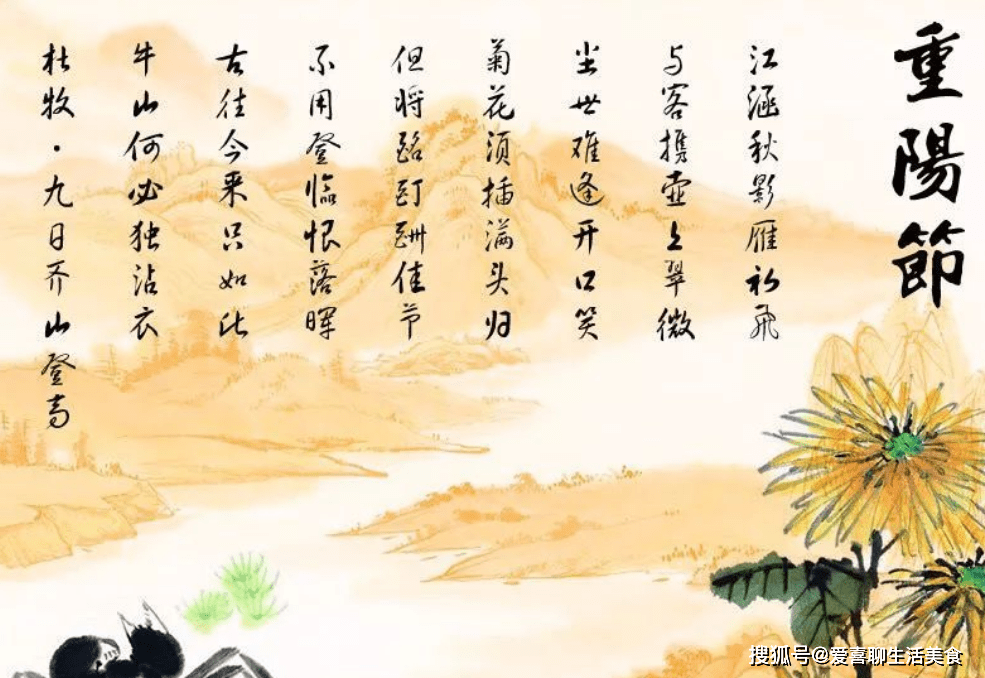 重陽節
江涵秋影雁初飞
与客携壶上翠微
尘世难逢开口笑
菊花须插满头归
但将酩酊酬佳节
不用登临恨落晖
古往今来只如此
牛山何必独沾衣
杜牧·九日齐山登高
搜狐号@爱喜聊生活美食